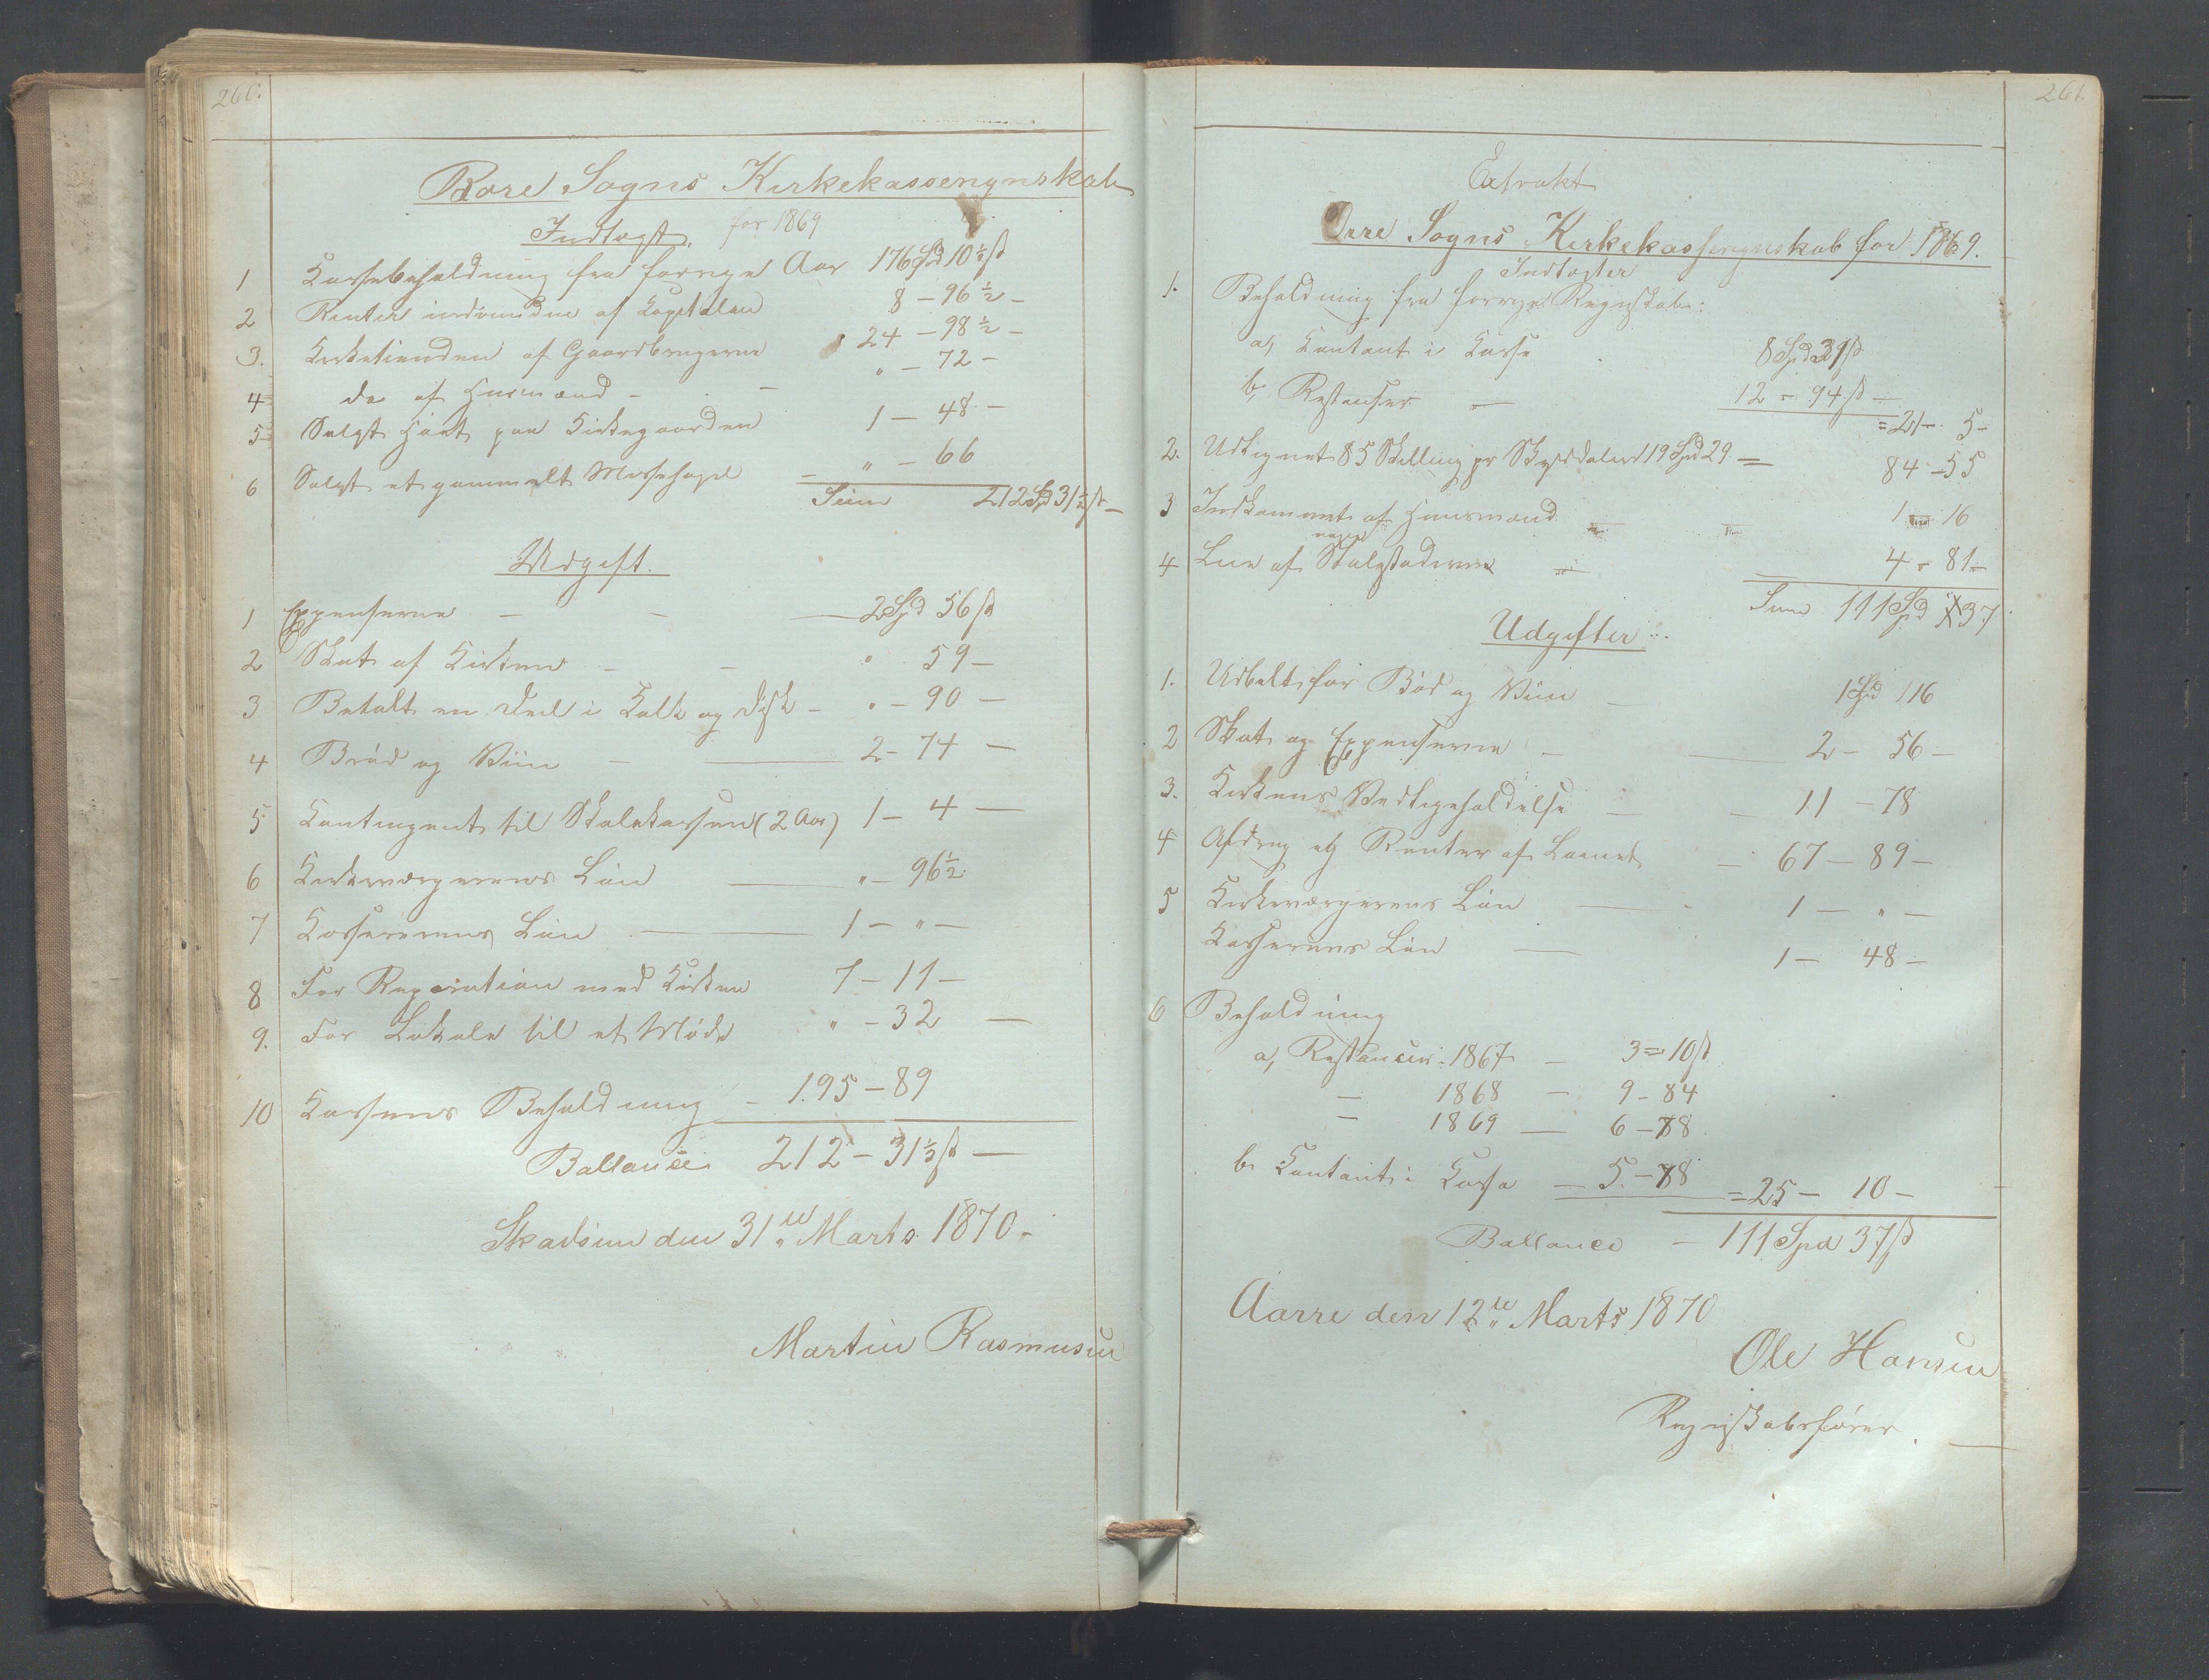 260.
Bore Sogns Kirkekasseregnskab
for 1869
Indtægt.
1 Kassebeholdning fra forrige Aar 176 Spd 10½ ß
2 Renter indvundne af Kapitalen 8 - 96½ -
3. Kirketienden af Gaardbrugerne 24 - 98½ -
4 do af Husmænd - - " - 72 -
5 Solgt Høet paa Kirkegaarden 1 - 48 -
6 Solgt et gammelt Messehagel - " - 66
Sum 212 Spd 31½ ß -
Udgift.
1 Expenserne - - 2 Spd 56 ß
2 Skat af Kirken - - " 59 -
3 Betalt en Deel i Kalk og Disk - " - 90 -
4 Brød og Viin - 2 - 74 -
5 Contingent til Skolekassen (2 Aar) 1 - 4 -
6 Kirkeværgerens Løn " - 96½
7 Kassererens Løn 1 - " -
8 For Reparation med Kirken 7 - 11 -
9. For Lokale til et Møde " - 32 -
10 Kassens Beholdning - 195 - 89
Ballance 212 - 31½ ß -
Skadsem den 31te Marts 1870 -
Martin Rasmusen
261.
Extrakt
Orre Sogns Kirkekasseregnskab for 1869.
Indtægter
1. Beholdning fra forrige Regnskab:
a, Contant i Casse 8 Spd 31 ß
b, Restanser - 12 - 94 ß - = 21 - 5 -
2. Udlignet 85 Skilling pr Skylddaler 119 Spd 29 - 84 - 55
3 Indkommet af Huusmænd 1 - 16
4 Leie af Stolestaderne 4 - 81 -
Sum 111 Spd 37
Udgifter
1. Udbelt for Brød og Viin 1 Spd 116
2 Skat og Expenserne - 2 - 56 -
3. Kirkens Vedligeholdelse - - 11 - 78
4 Afdrag og Renter af Laanet - 67 - 89 -
5 Kirkeværgerens Løn - 1 - " -
Kassererens Løn - 1 - 48 -
6 Beholdning
a, Restancer: 1867 - 3 = 10 ß
- 1868 - 9 - 84
- 1869 - 6 - 88
b. Contant i Cassa - 5 - 88 = 25 - 10 -
Ballance - 111 Spd 37 ß
Aarre den 12te Marts 1870
Ole Hansen
Regnskabsfører.